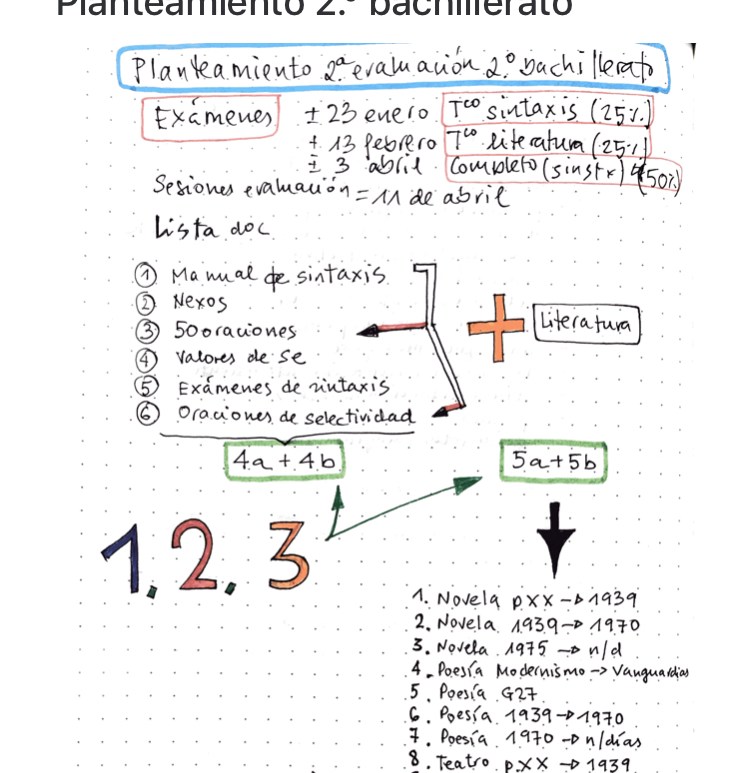 Planteamiento 2.º bachillerato
Planteamiento 2ª evaluación 2.º bachillerato
Exámenes ± 23 enero Tco sintaxis (25%)
± 13 febrero Tco literatura (25%)
± 3 abril Completo (sinstx) (50%)
Sesiones evaluación = 11 de abril
Lista doc
① Manual de sintaxis
② Nexos
③ 50 oraciones
④ Valores de Se
⑤ Exámenes de sintaxis
⑥ Oraciones de selectividad
+ Literatura
4a + 4b
5a+5b
1, 2, 3
1. Novela pXX → 1939
2. Novela 1939 → 1970
3. Novela 1975 → n/d
4. Poesía Modernismo → Vanguardias
5. Poesía G27
6. Poesía 1939 → 1970
7. Poesía 1970 → n/días
8. Teatro pXX → 1939